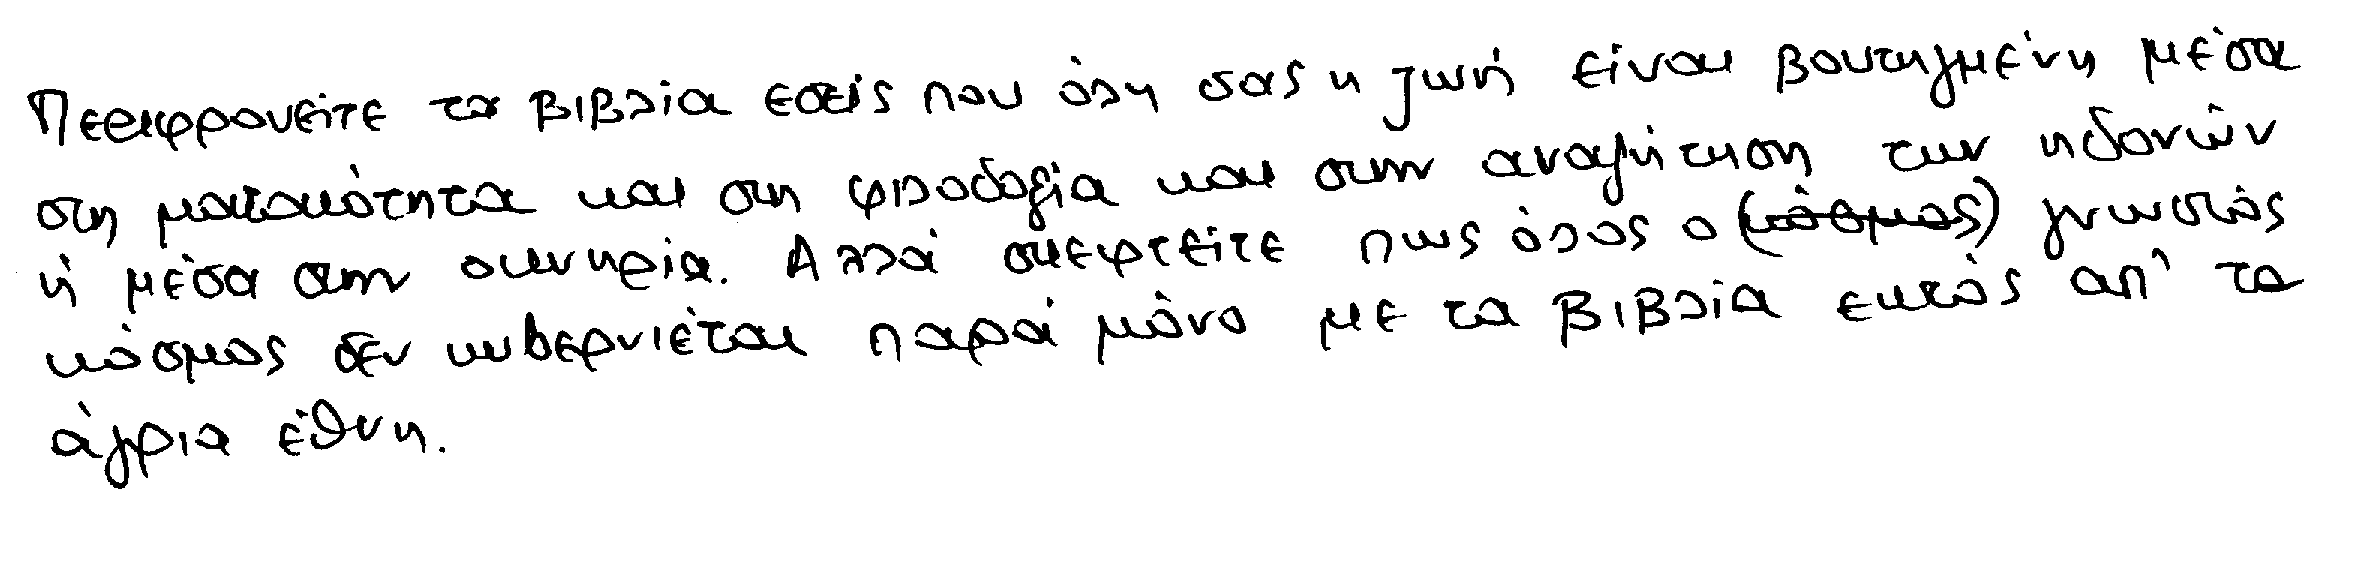 Περιφρονείτε τα βιβλία εσείς που όλη σας η ζωή είναι βουτηγμένη μέσα
στη ματαιότητα και στη φιλοδοξία και στην αναζήτηση των ηδονών
ή μέσα στην οκνηρία. Αλλά σκεφτείτε πως όλος ο (κόσμος) γνωστός
κόσμος δεν κυβερνιέται παρά μόνο με τα βιβλία εκτός απ' τα
άγρια έθνη.